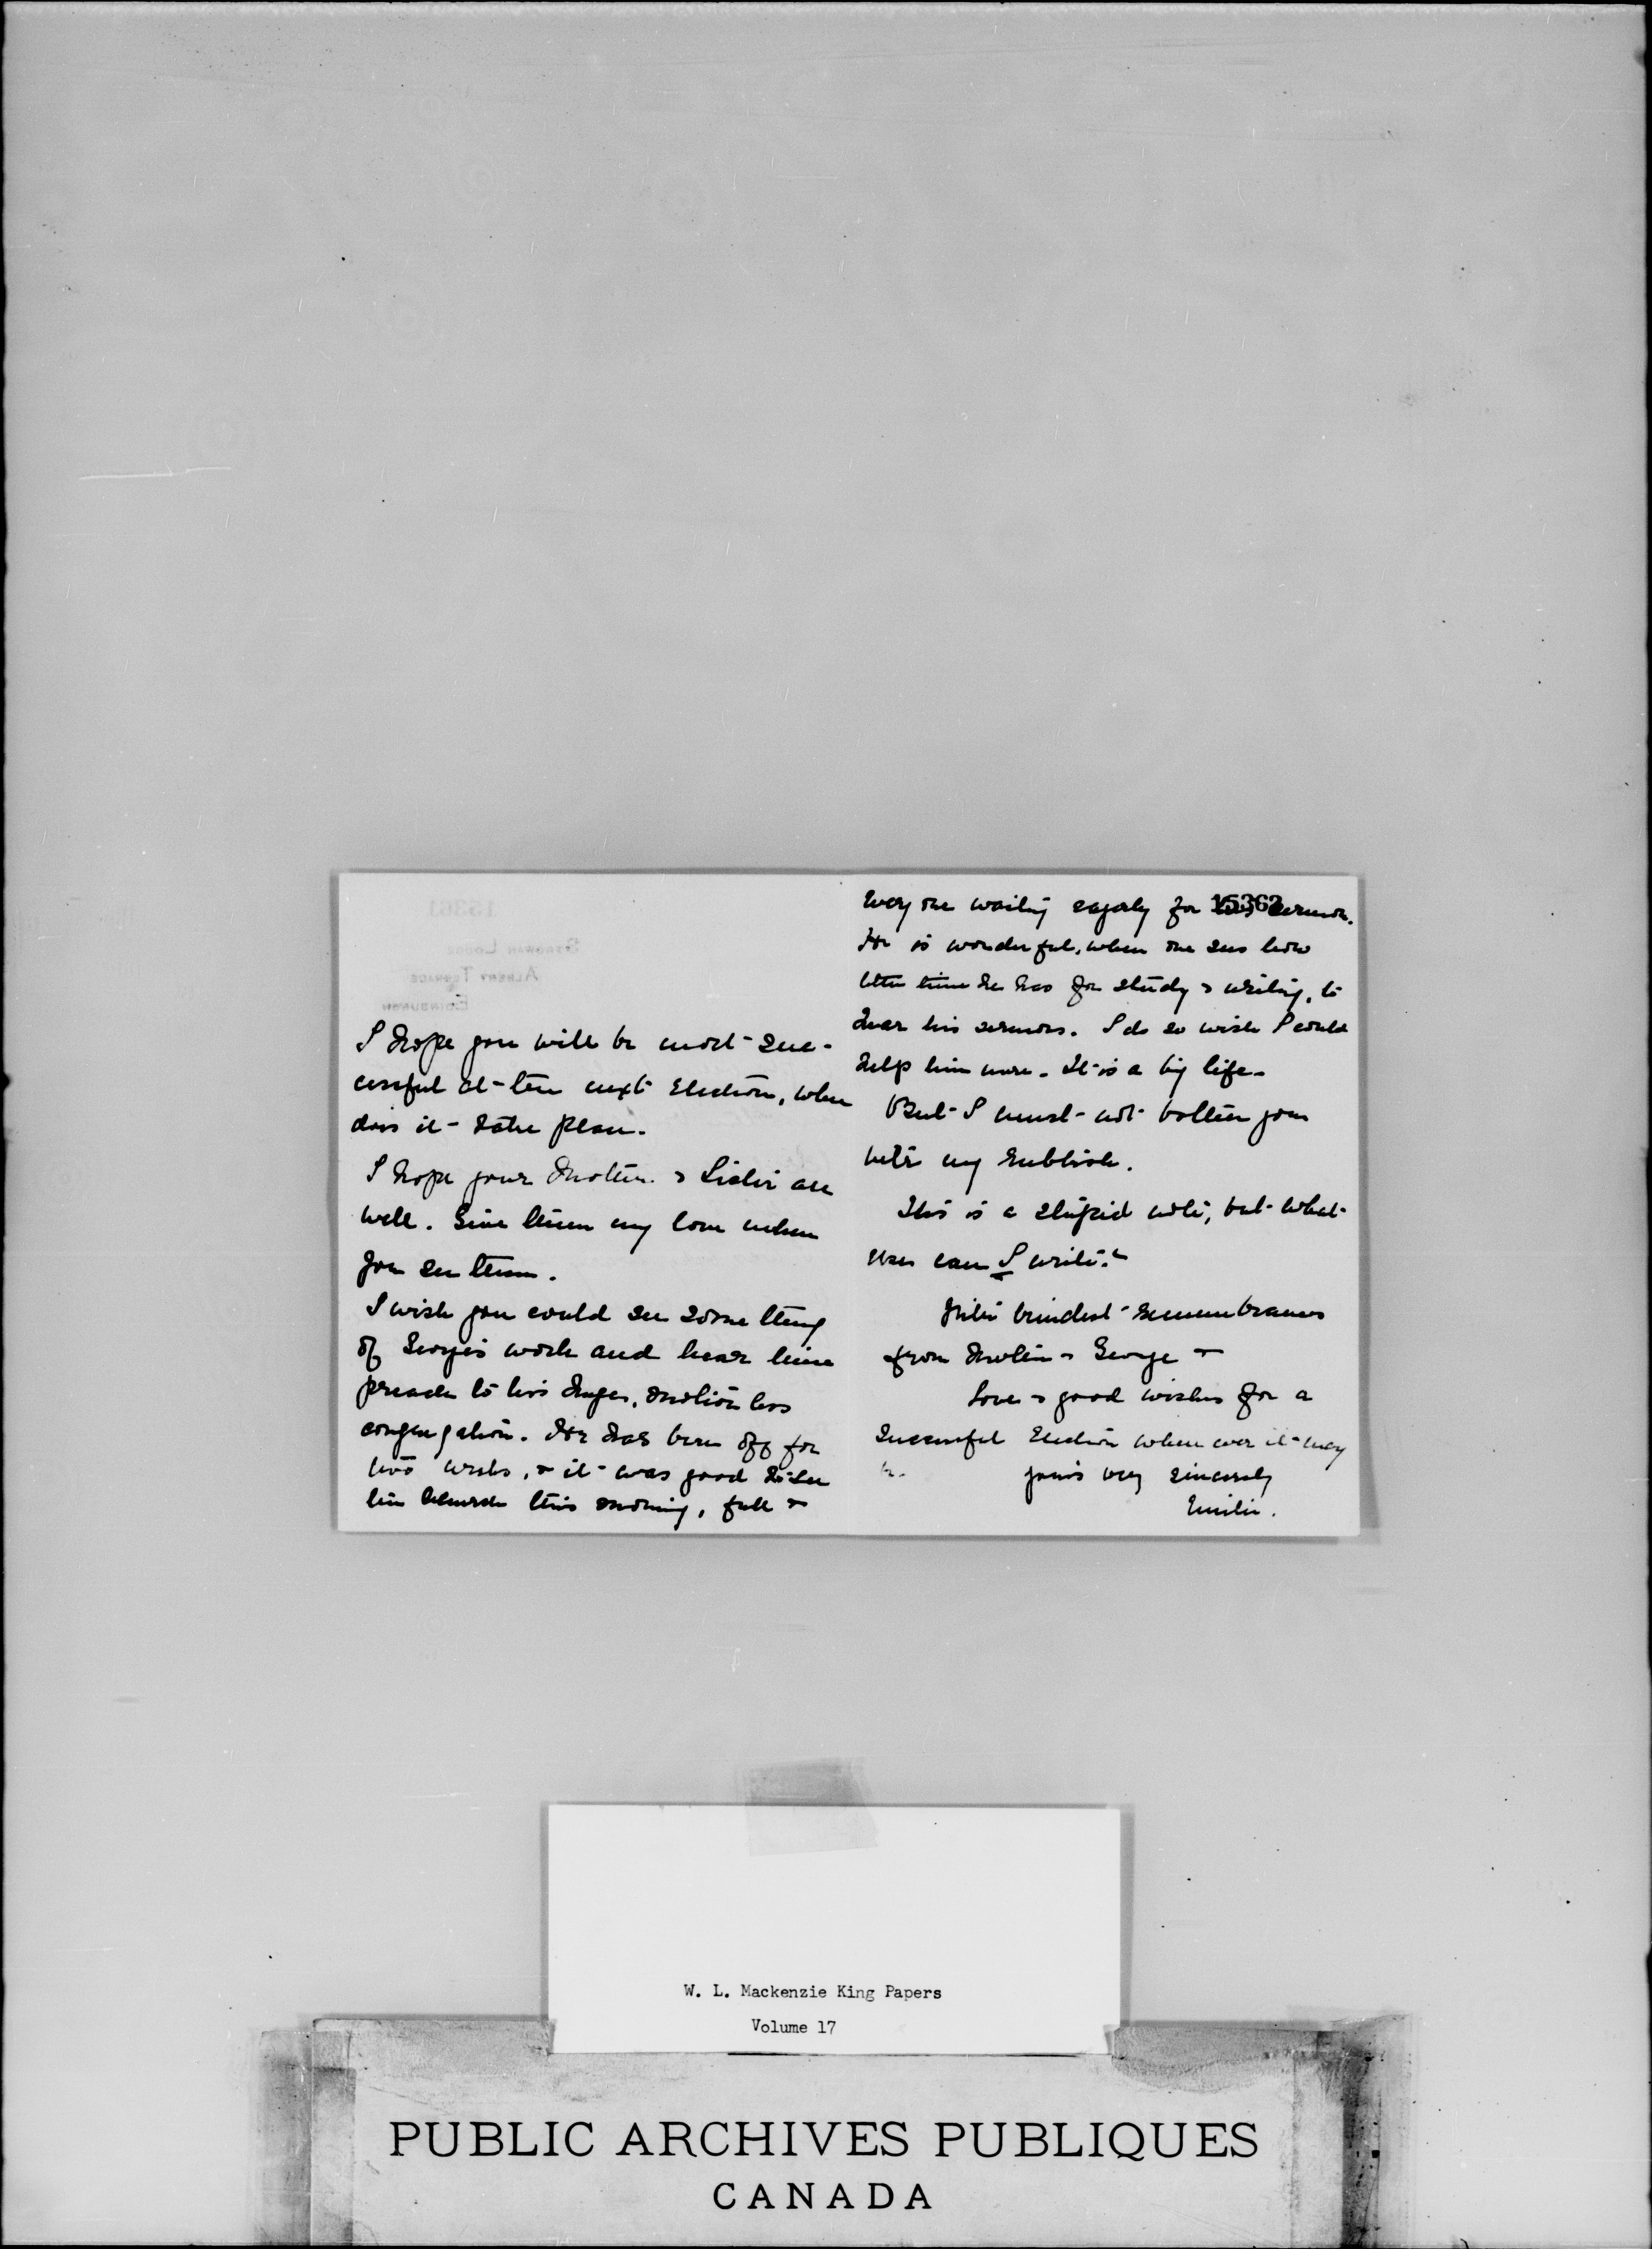 I hope you will be most suc-
cessful at the next Election, when
does it take place.
I hope your Mother & Sister are
well. Give them my love when
you see them.
I wish you could see something
of George's work and hear him
preach to his huge, 
congregation. He has been off for
two weeks, & it was good to see
his Church this morning, full &
every one waiting eagerly for his sermon.
15362
He is wonderful, when one sees how
little time he has for study & writing, to
hear his sermons. I do so wish I could
help him more. It is a big life.
But I must not bother you
with my rubbish.
This is a stupid note, but what
else can I write?
With kindest remembrances
from Mother & George &
Love & good wishes for a
successful Election when ever it may
be. Yours very sincerely
Emilie.
15361
Strowan Lodge
Albert Terrace
Edinburgh
W. L. Mackenzie King Papers
Volume 17
PUBLIC ARCHIVES PUBLIQUES
CANADA